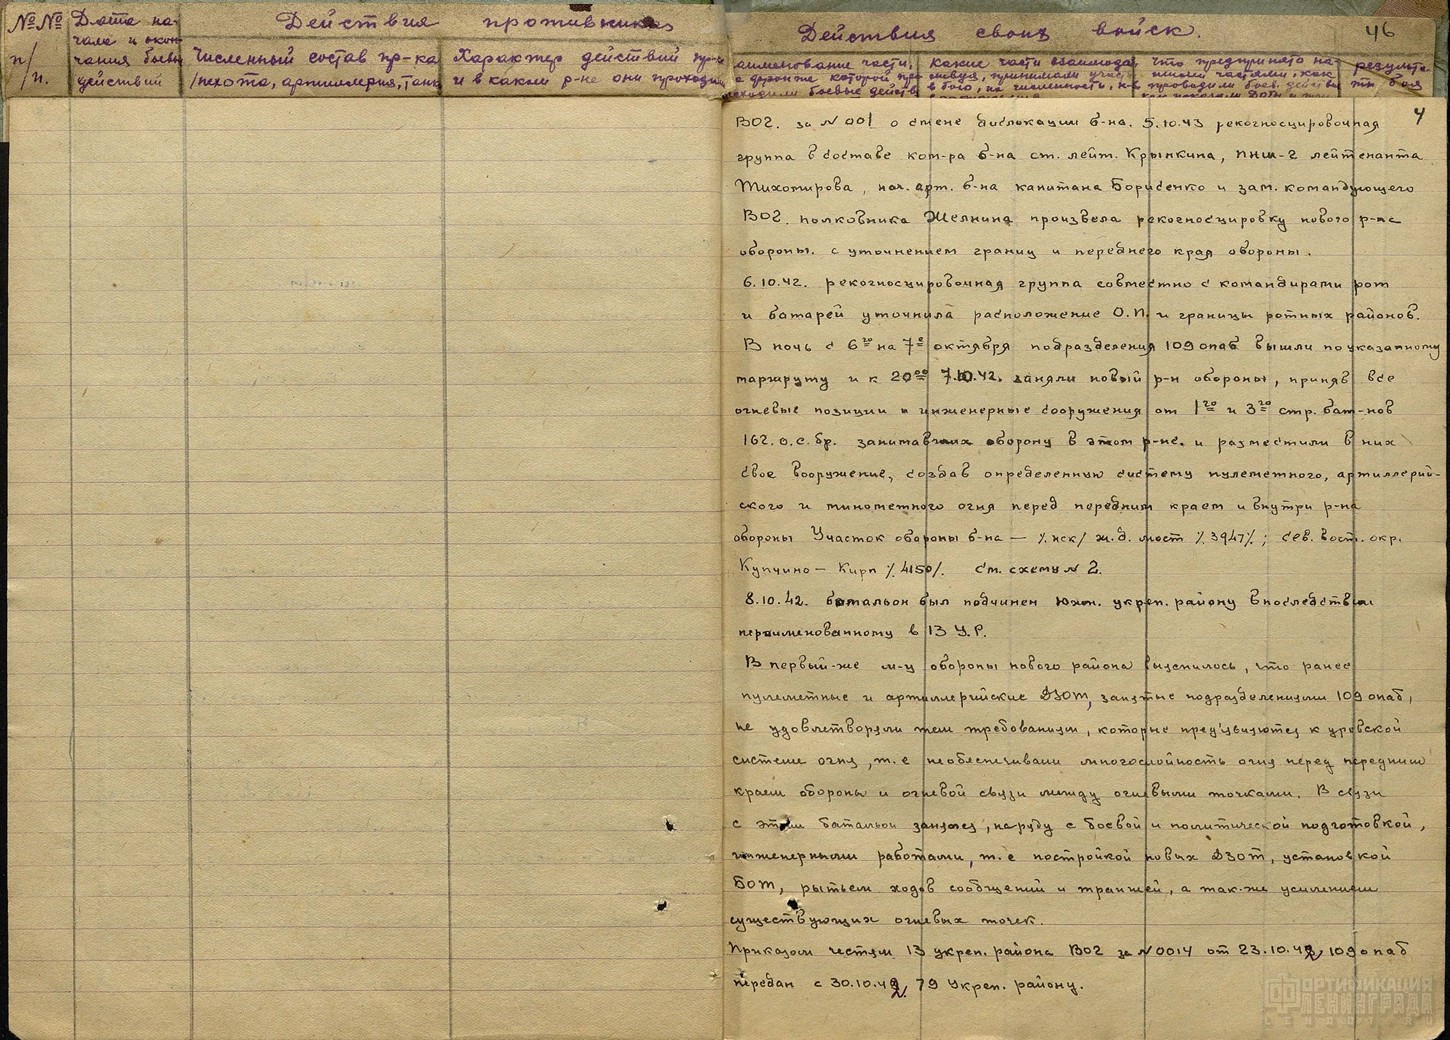 №№ п/п.
Дата начала и окончания боевых действий
Действия противника
Численный состав пр-ка /пехота, артиллерия, танк
Характер действий пр-ка и в каком р-не они проходили
Действия своих войск.
46
наименование части, в фронте которой происходили боевые действ
какие части взаимодействуя, принимали участ в бою, их численность,
что предпринято нашими частями, как проводили боев. действи
результаты боя
4
ВОГ. за №001 о смене дислокации б-на. 5.10.43 рекогносцировочная
группа в составе ком-ра б-на ст. лейт. Крынкина, ПНШ-2 лейтенанта
Тихомирова, нач. арт. б-на капитана Борисенко и зам. командующего
ВОГ. полковника Желнина произвела рекогносцировку нового р-на
обороны. с уточнением границ и переднего края обороны.
6.10.42. рекогносцировочная группа совместно с командирами рот
и батарей уточнила расположение О.П. и границы ротных районов.
В ночь с 6го на 7е октября подразделения 109 опаб вышли по указанному
маршруту и к 20оо 7.10.42. заняли новый р-н обороны, приняв все
огневые позиции и инженерные сооружения от 1го и 3го стр. бат-нов
162.о.с.бр. занимавших оборону в этом р-не. и разместили в них
свое вооружение, создав определенную систему пулеметного, артиллерий-
ского и минометного огня перед передним краем и внутри р-на
обороны Участок обороны б-на — /.иск/ ж.д. мост /.3947/.; сев. вост. окр.
Купчино — Кирп /.4150/. см. схему № 2.
8.10.42. батальон был подчинен Южн. укреп. району впоследствии
переименованному в 13 У.Р.
В первый-же м-ц обороны нового района выяснилось, что ранее
пулеметные и артиллерийские ДЗОТ, занятые подразделениями 109 опаб,
не удовлетворяли тем требованиям, которые предъявляются к уровской
системе огня, т.е необеспечивали многослойность огня перед передним
краем обороны и огневой связи между огневыми точками. В связи
с этим батальон занялся, наряду с боевой и политической подготовкой,
инженерными работами, т.е постройкой новых ДЗОТ, установкой
БОТ, рытьем ходов сообщений и траншей, а так-же усилением
существующих огневых точек.
Приказом частям 13 укреп. района ВОГ за №0014 от 23.10.42 109 опаб
передан с 30.10.42. 79 Укреп. району.
ФОРТИФИКАЦИЯ
ЛЕНИНГРАДА